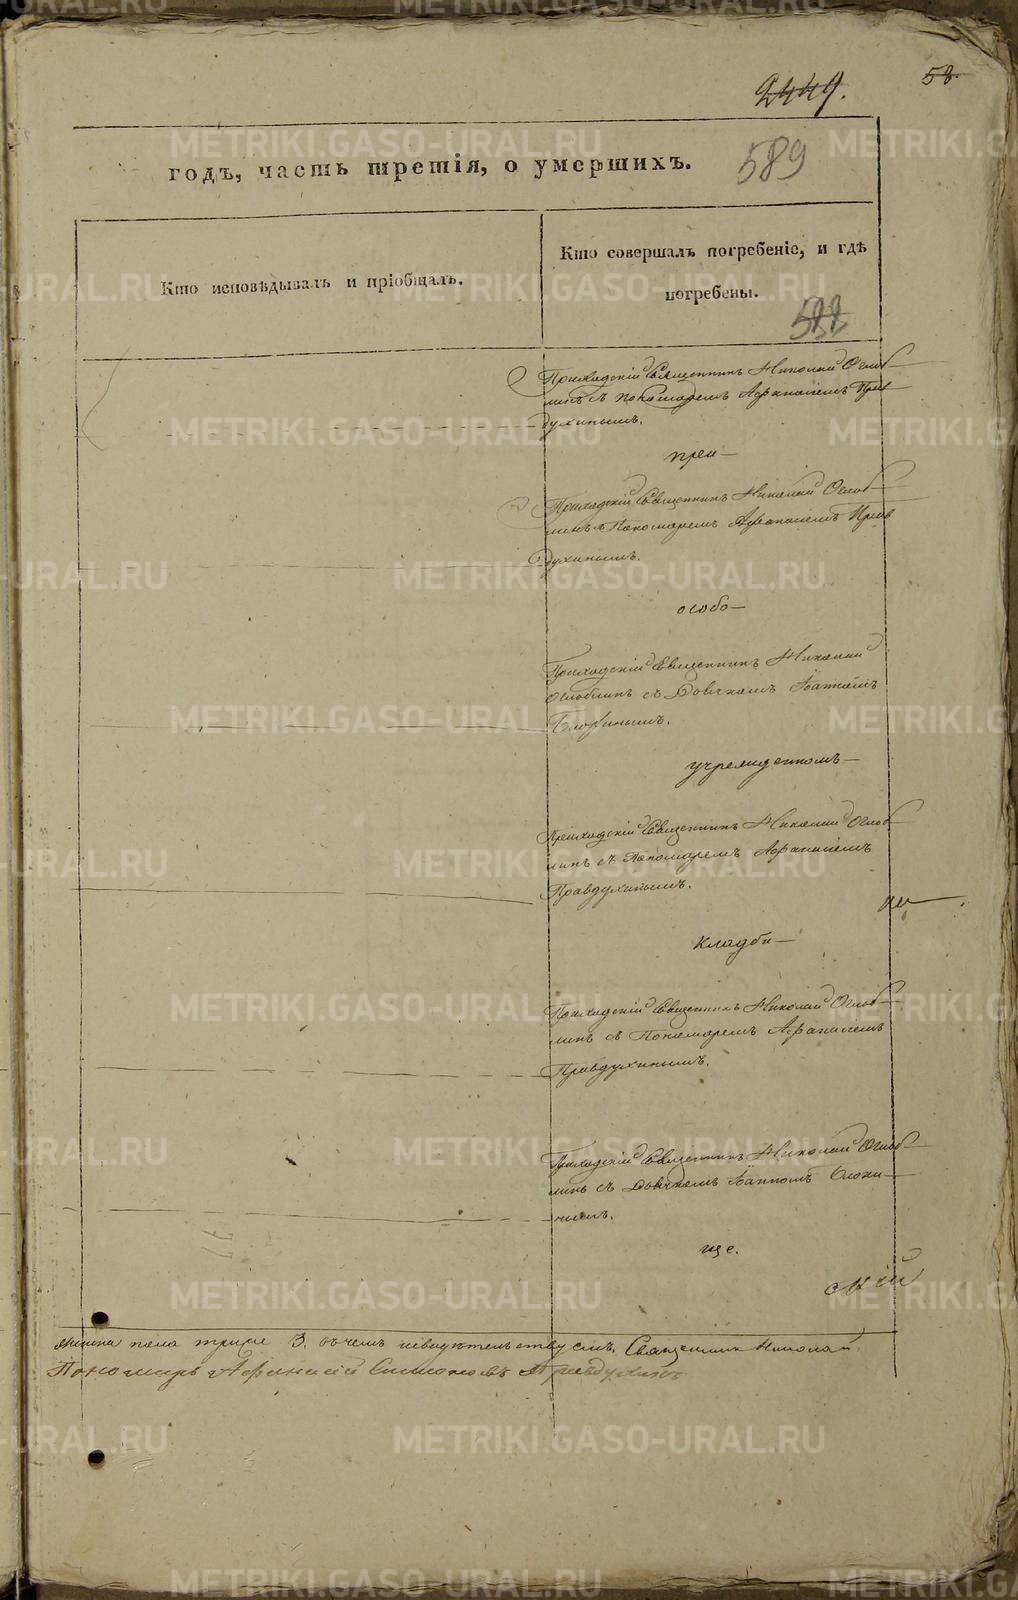 58.
2449.
годъ, часть третія, о умершихъ.
589
Кто исповѣдывалъ и пріобщалъ.
Кто совершалъ погребеніе, и гдѣ
погребены.
588
Приходскій Священникъ Николай Оглоб-
линъ съ Пономаремъ Афанасіемъ Прав-
духинымъ.
при-
Приходскій Священникъ Николай Оглоб-
линъ съ Пономаремъ Афанасіемъ Прав
духинымъ.
особо-
Приходскій Священникъ Николай
Оглоблинъ съ Дьячкомъ Іоанномъ
учрежденномъ-
Приходскій Священникъ Николай Оглоб-
линъ съ Пономаремъ Афанасіемъ
Правдухинымъ.
кладби-
Приходскій Священникъ Николай Оглоб-
линъ съ Пономаремъ Афанасіемъ
Правдухинымъ.
Приходскій Священникъ Николай Оглоб-
линъ съ Дьячкомъ Іоанномъ
нымъ.
ще.
скій
пола трое 3. въ чемъ и свидѣтельствуемъ, Священникъ Николай
Пономарь Афанасій Симоновъ Правдухинъ